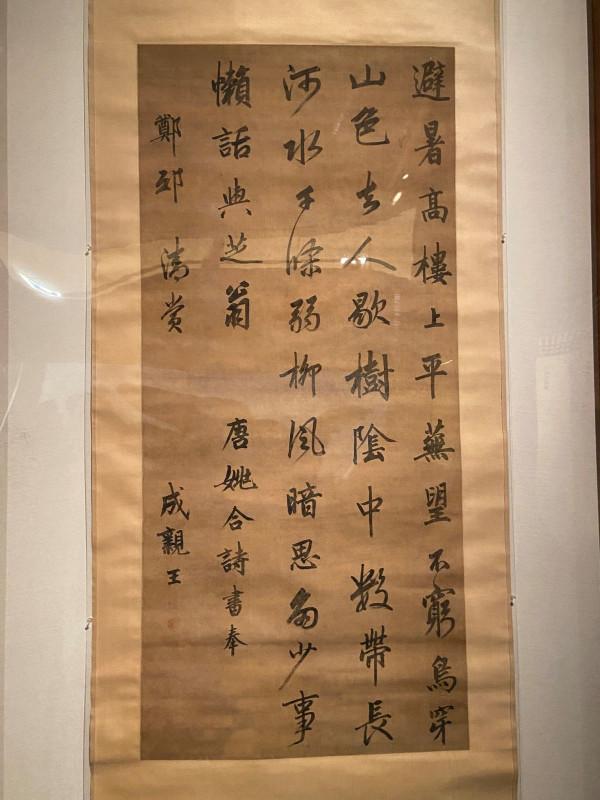 避暑高樓上平蕪望不窮鳥穿
山色去人歇樹陰中数帶長
河水千條弱柳風暗思多少事
懶話與芝翁 唐姚合詩書奉
鄭邸 清賞 成親王